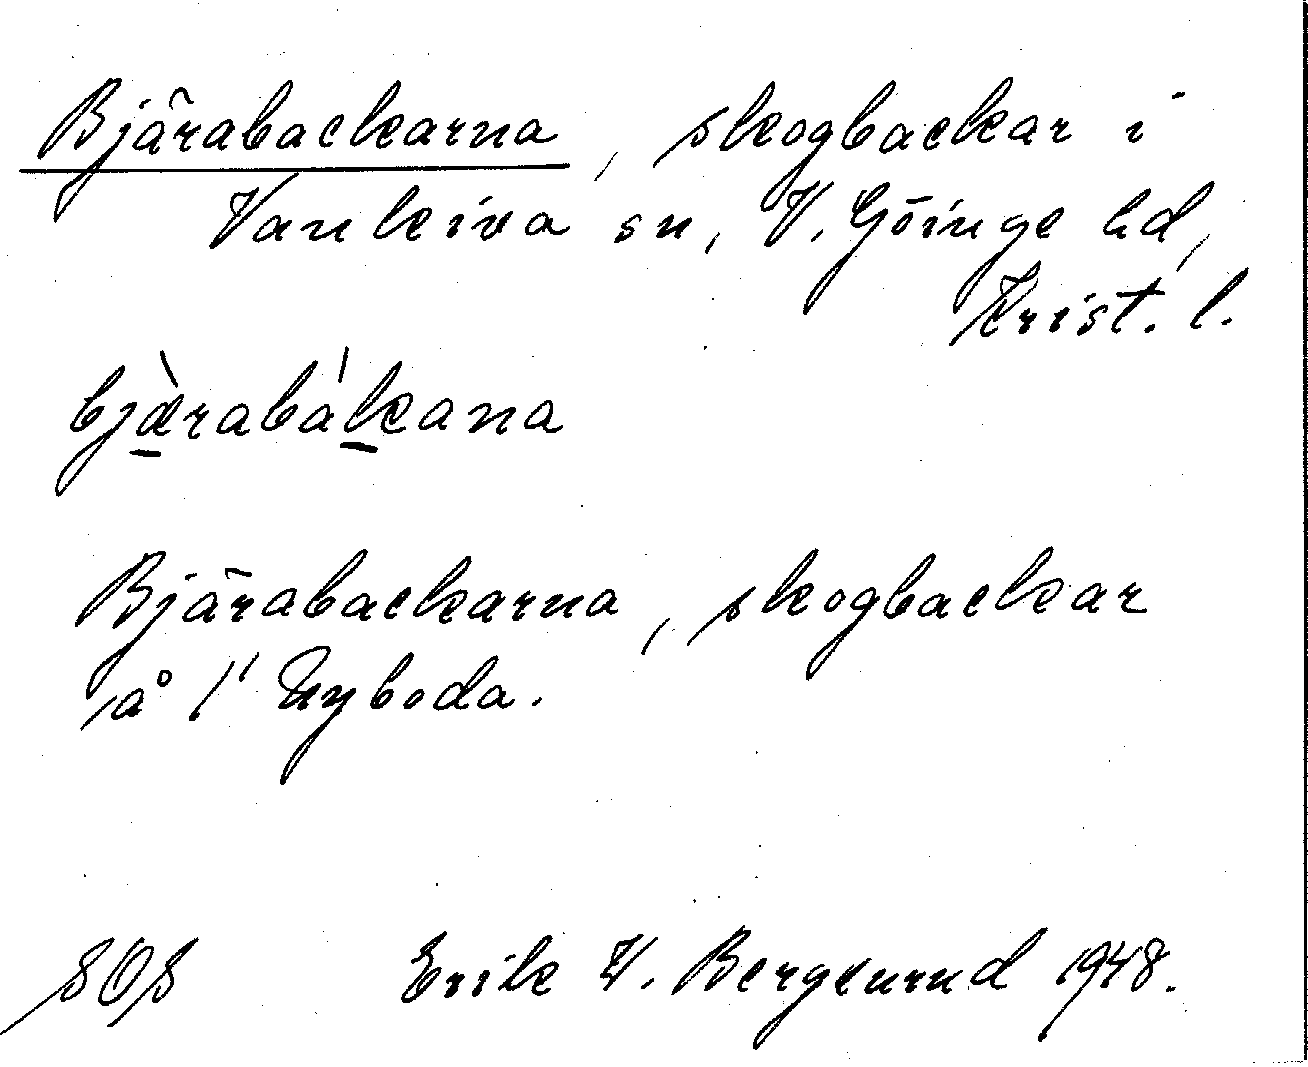 Bjärabackarna, skogbackar i
Vankiva sn, V. Göinge hd,
Krist. l.
bjæ̀rabákana
Bjärabackarna, skogbackar
å l' Nyboda.
SOS Erik W. Berglund 1948.